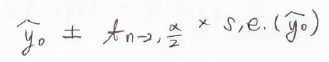 ŷ₀ ± tₙ₋₂, α/2 × s.e.(ŷ₀)